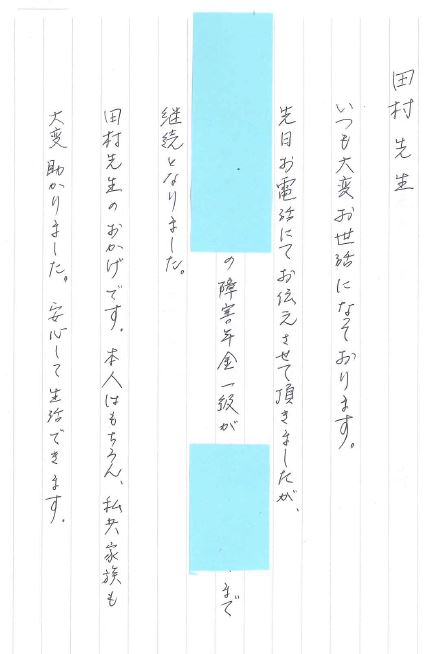 田村先生
いつも大変お世話になっております。
先日お電話にてお伝えさせて頂きましたが、
の障害年金一級が まで
継続となりました。
田村先生のおかげです。本人はもちろん、私共家族も
大変助かりました。安心して生活できます。